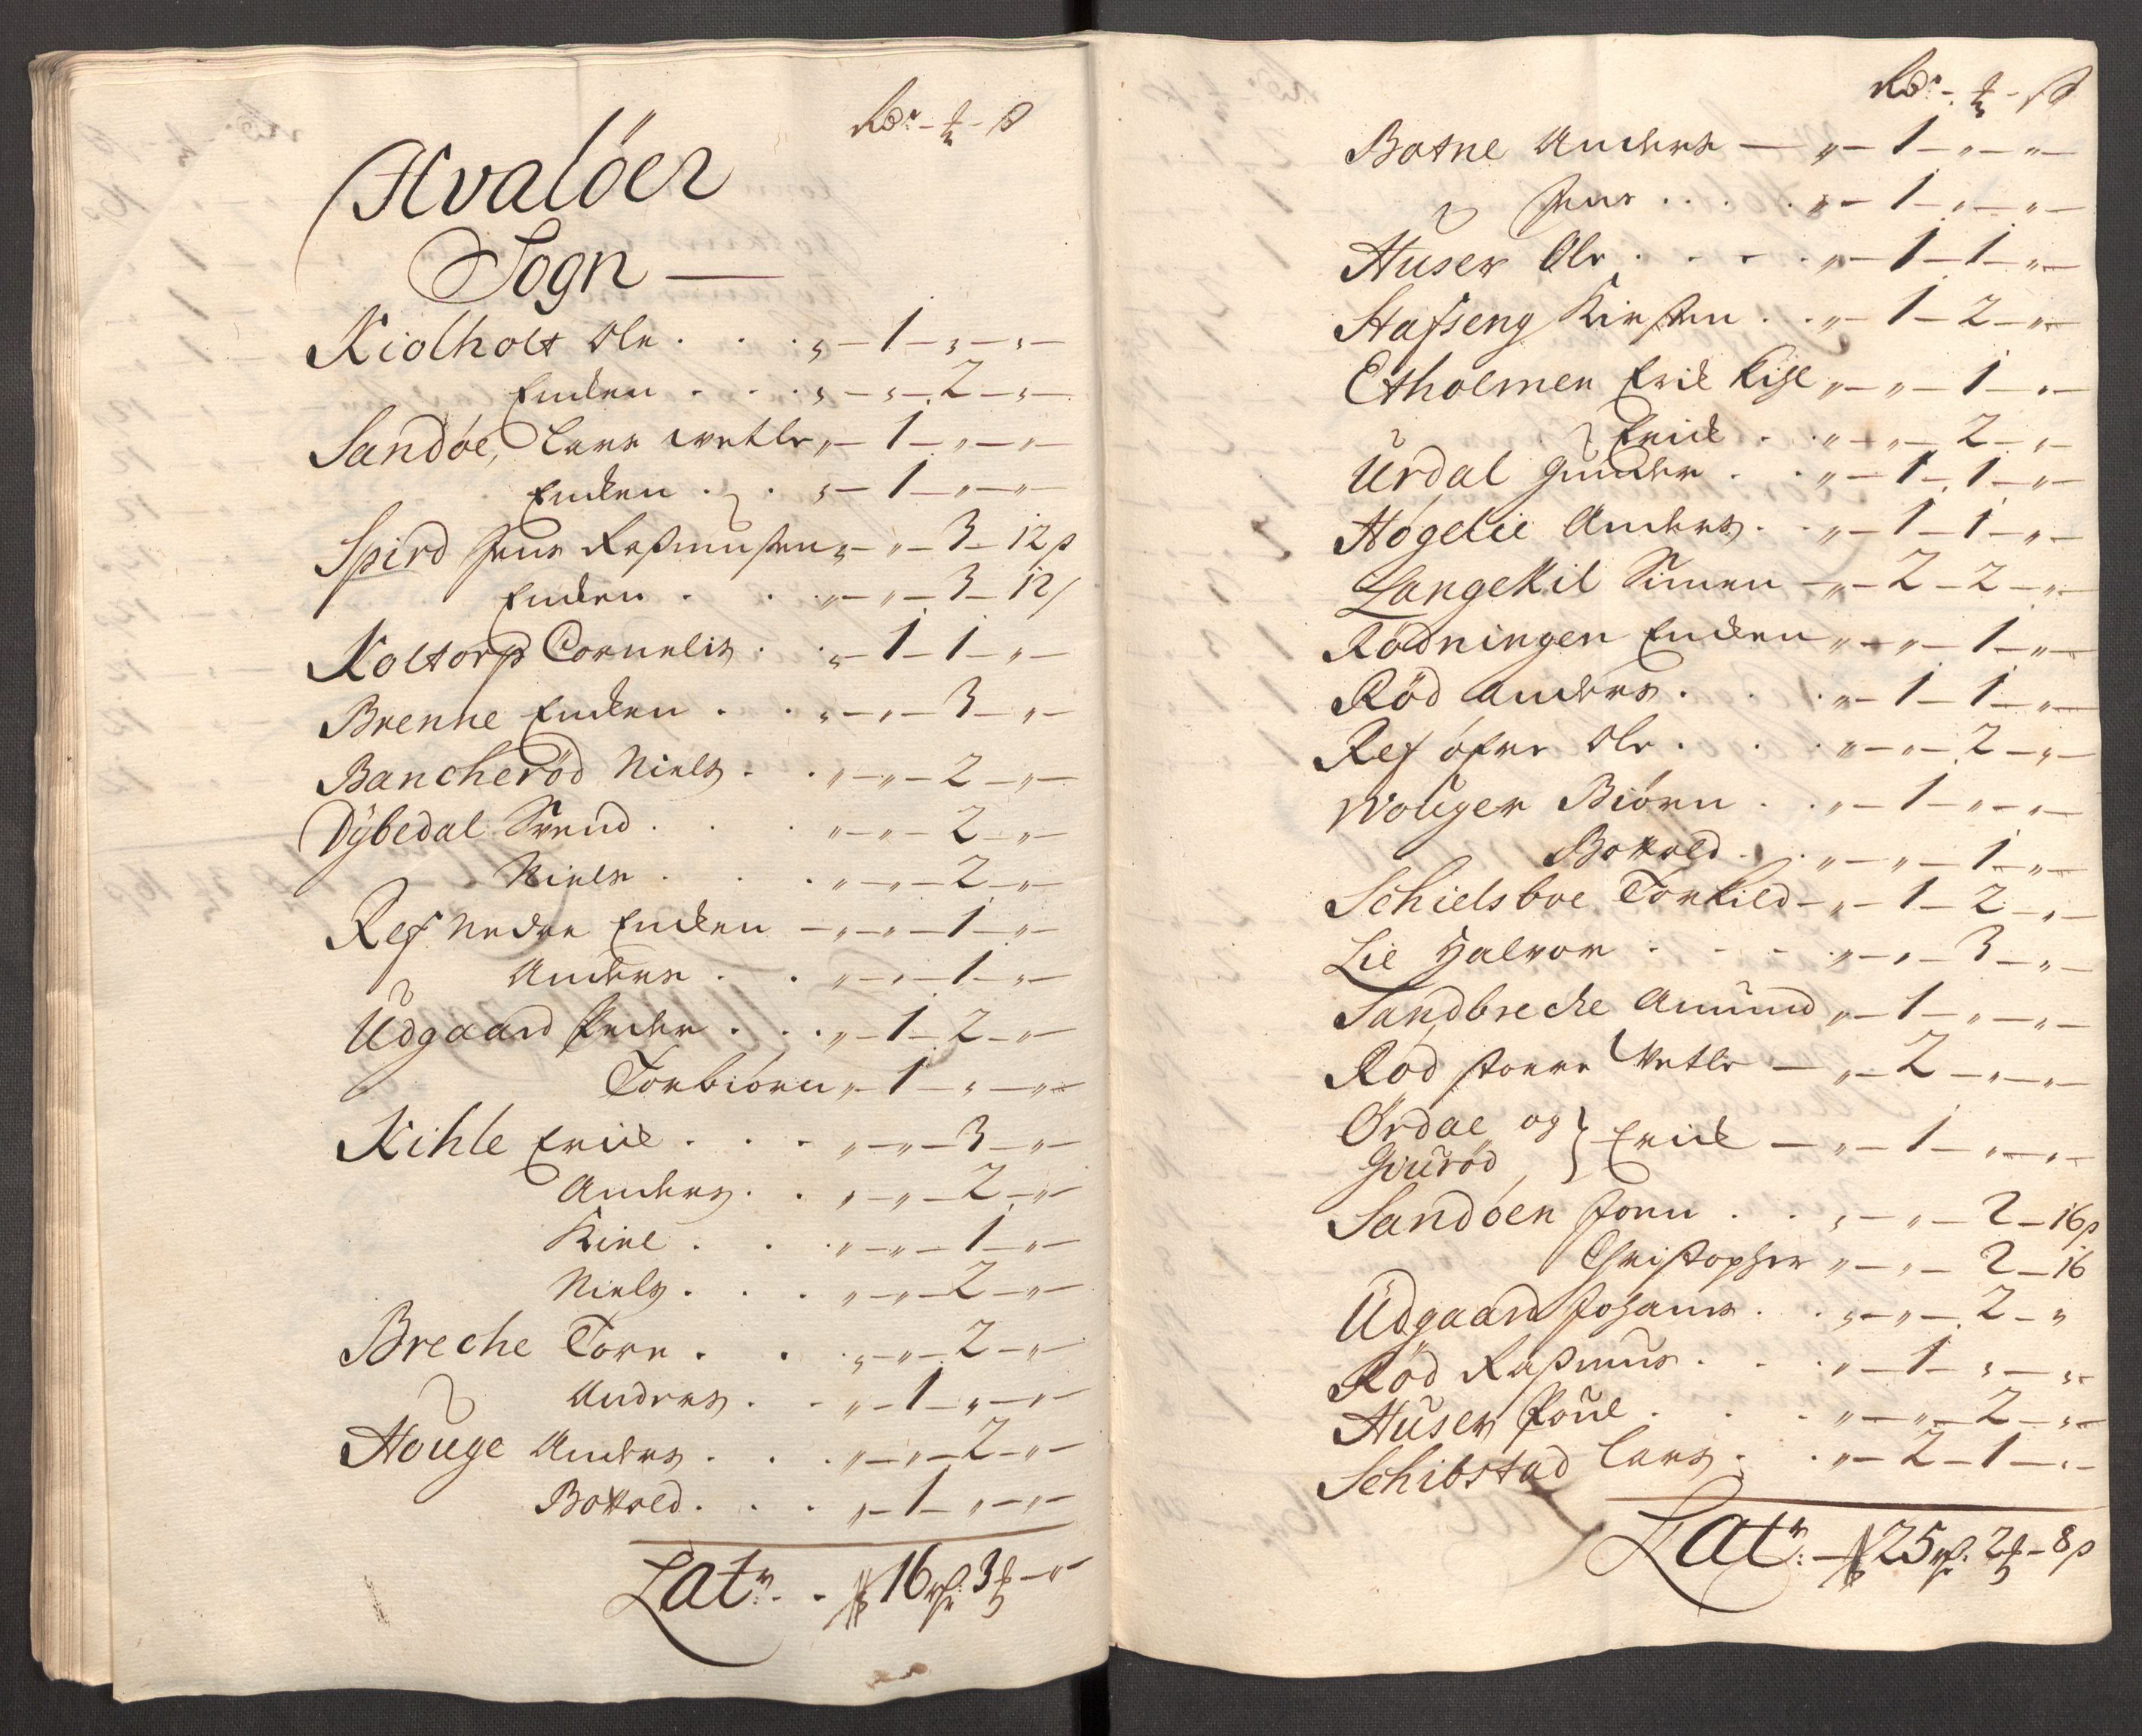 Rdr - ₰ - ß
Hvalöer
Sogn —
Kiolholt Ole . . . „ — 1 — „ — „ —
Encken . . . „ — „ — 2 — „ —
Sandöe, Lars wetle „ — 1 — „ — „ —
Encken . . „ — 1 — „ — „ —
Spird Jens Rasmussen „ — „ — 3 — 12 ß
Encken . . „ — „ — 3 — 12 /
Koltorp Cornelis . . „ — 1 — 1 — „ —
Brenne Encken . . „ — „ — 3 — „ —
Bancheröd Niels . . „ — „ — 2 — „ —
Dÿbedal Svend . . . „ — „ — 2 — „ —
Niels . . . „ — „ — 2 — „ —
Ref nedre Encken — „ — „ — 1 — „ —
Anders . . „ — „ — 1 — „ —
Udgaard Peder . . . „ — 1 — 2 — „ —
Torbiörn „ — 1 — „ — „ —
Kihle Erick . . . „ — „ — 3 — „ —
Anders . . „ — „ — 2 — „ —
Kield . . . „ — „ — 1 — „ —
Niels . . . „ — „ — 2 — „ —
Breche Tore . . . „ — „ — 2 — „ —
Anders . . „ — 1 — „ — „ —
Houge Anders . . . „ — „ — 2 — „ —
Botvold . . . „ — 1 — „ — „ —
Latr: . 16 3 — „ —
Rdr - ₰ - ß
Botne Anders — „ — 1 — „ — „ —
Jens . . . . „ — 1 — „ — „ —
Huser Ole . . . . „ — 1 — 1 — „ —
Stafseng Kirsten . . „ — 1 — 2 — „ —
Etholmen Erik „ — „ — 1 — „ —
Erick . . „ — „ — 2 — „ —
Urdal Gunder . . „ — 1 — 1 — „ —
Hogelie Anders . . „ — 1 — 1 — „ —
Langekil Simen — „ — 2 — 2 — „ —
Rödningen Encken „ — „ — 1 — „ —
Röd Anders . . . „ — 1 — 1 — „ —
Ref öfre Ole . . . „ — „ — 2 — „ —
Wouger Biörn . . „ — 1 — „ — „ —
Botvold . . „ — „ — 1 — „ —
Schielsboe Torkild — „ — 1 — 2 — „ —
Lie Halvor . . . . „ — „ — 3 — „ —
Sandbreche Amund „ — 1 — „ — „ —
Röd störe Vetle — „ — 2 — „ — „ —
Ördal og } Erick — „ — 1 — „ — „ —
Giuröd
Sandöen Jörn . . „ — „ — 2 — 16 ß
Christopher „ — „ — 2 — 16
Udgaard Johannes . . „ — „ — 2 — „
Röd Rasmus . . . „ — 1 — „ — „
Huser Poul . . . „ — „ — 2 — „ —
Schibstad Lars . . „ — 2 — 1 — „ —
Latr: — 25 2 — 8 ß